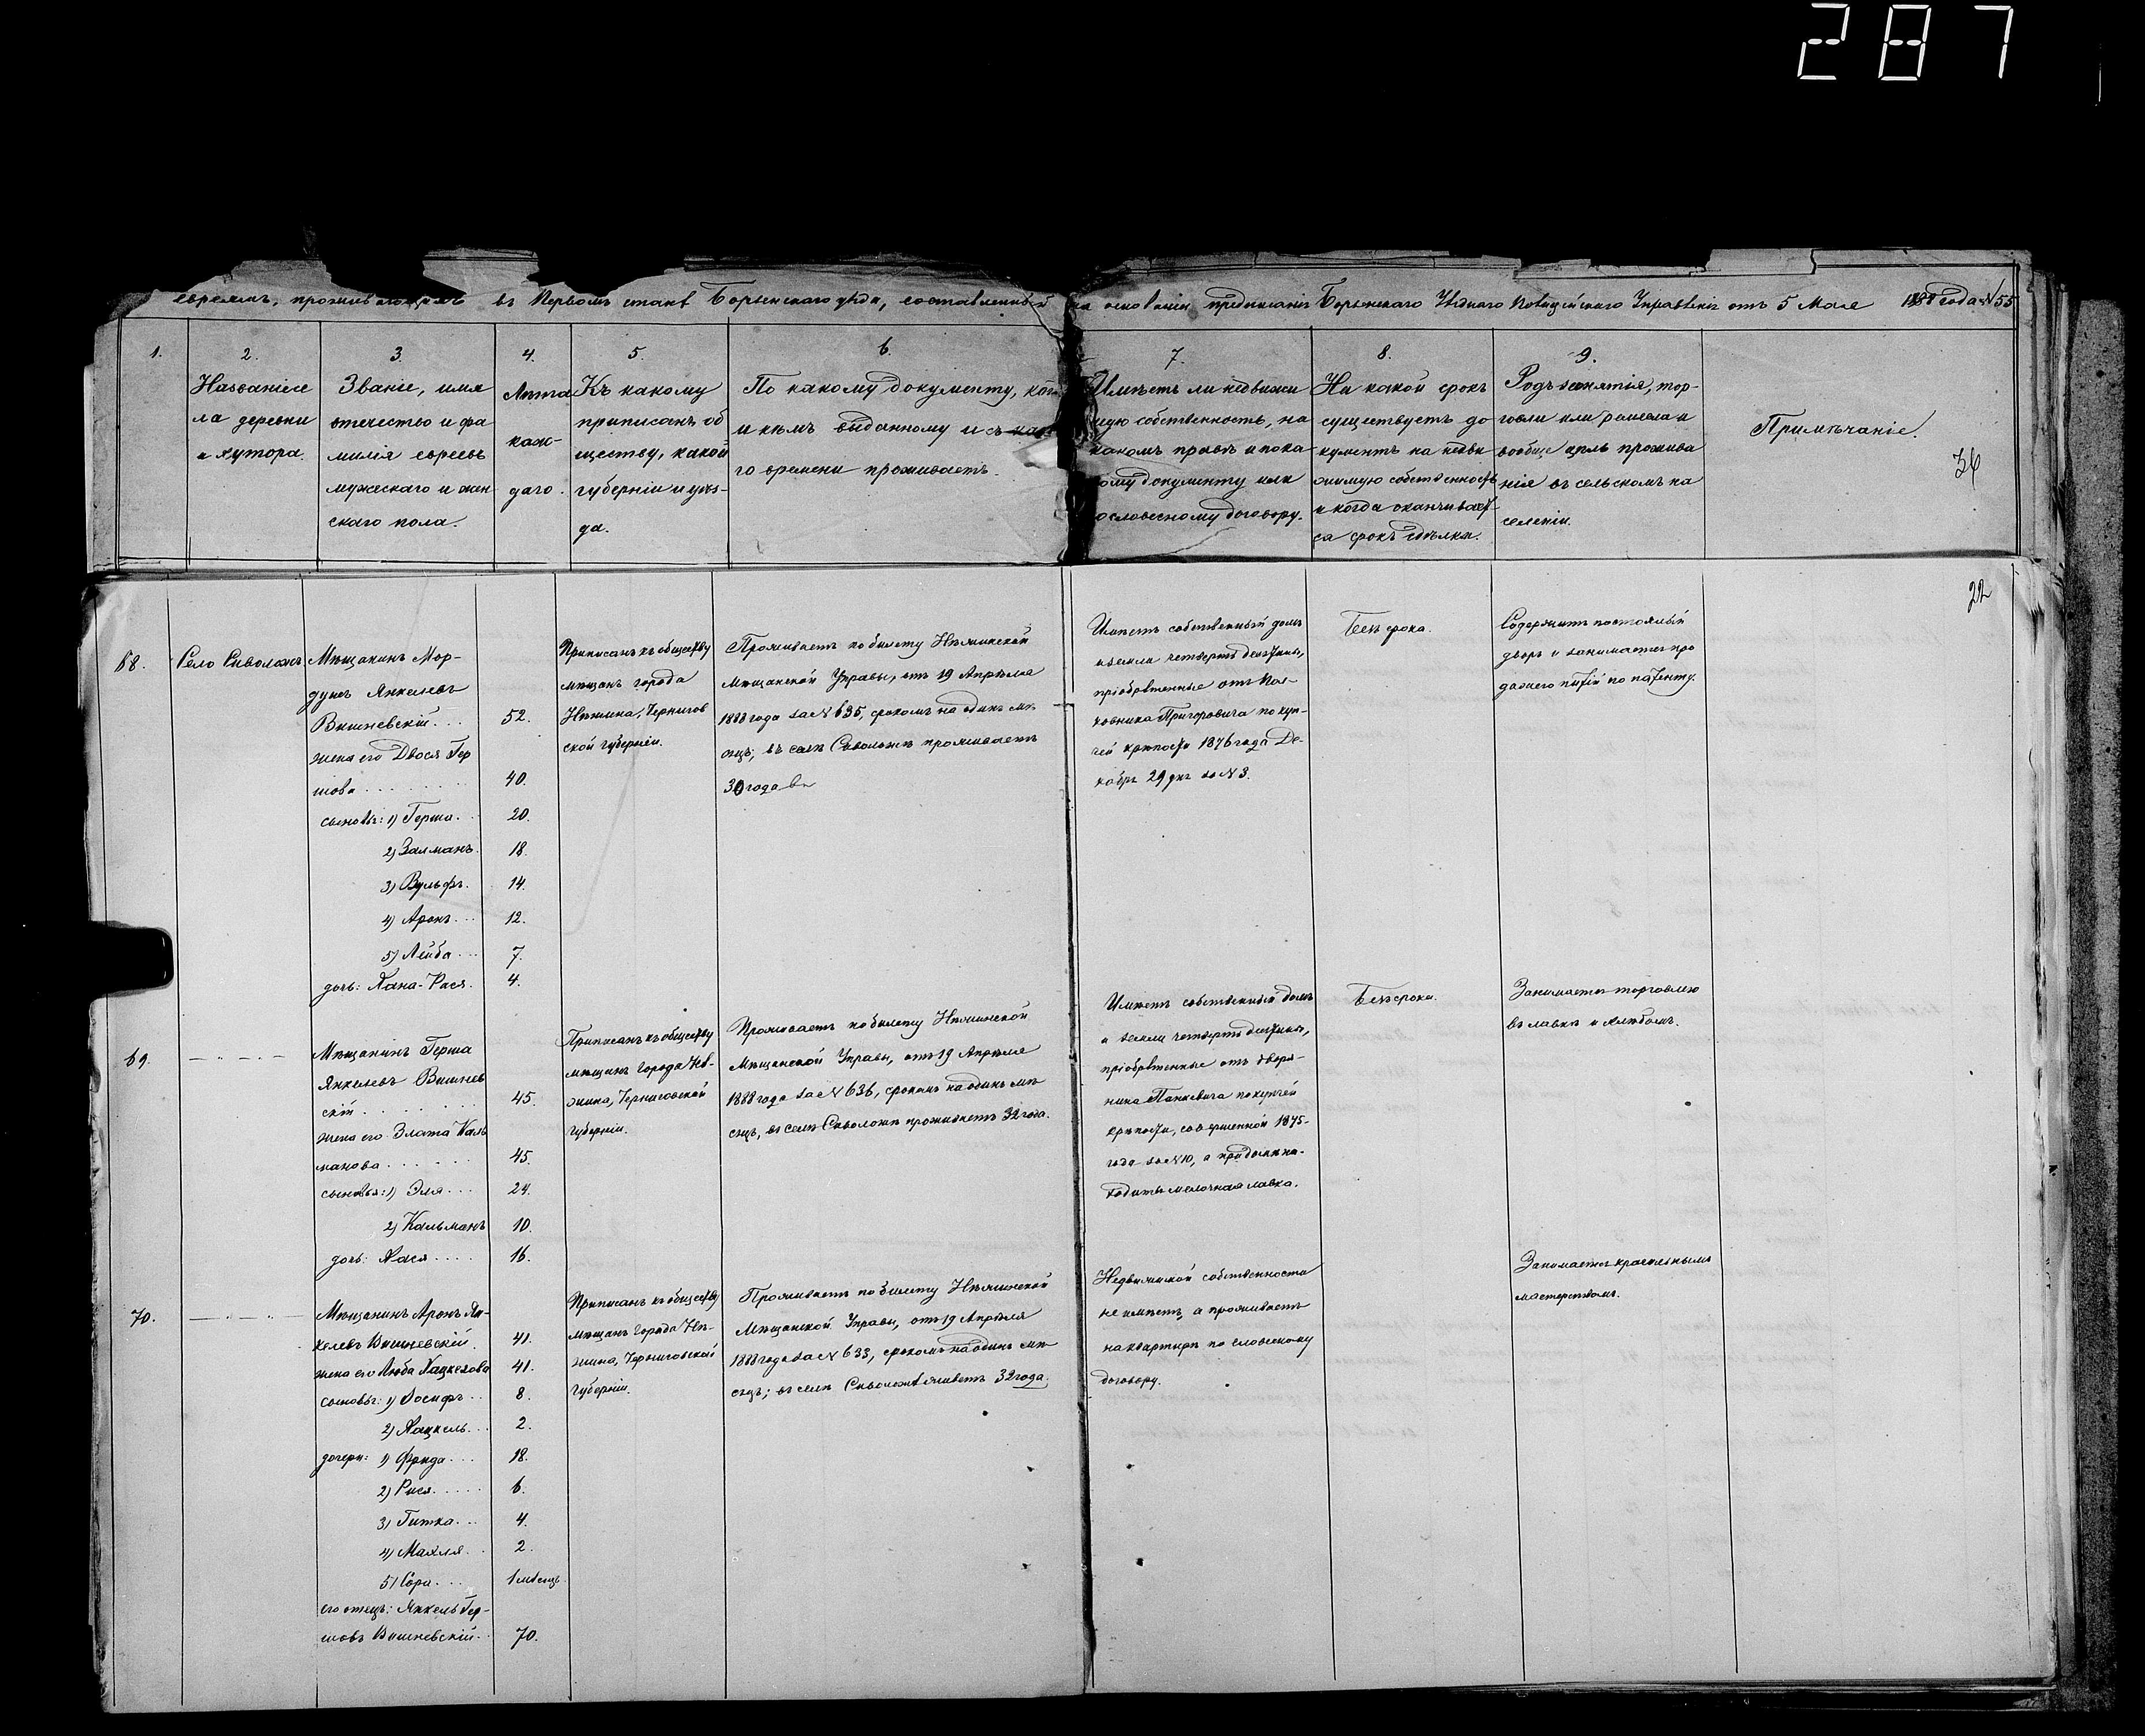 287
евреямъ, проживающимъ въ Первомъ станѣ Борзенскаго уѣзда, составленный на основаніи предписанія Борзенскаго Уѣзднаго Полицейскаго Управленія отъ 5 Мая 1888 года № 55
1.
2.
Названіе се
ла деревни
и хутора.
3.
Званіе, имя
отчество и фа
милія евреевъ
мужескаго и жен
скаго пола.
4.
Лѣта
каж-
даго.
5.
Къ какому
приписанъ об
ществу, какой
губерніи и уѣз-
да.
6.
По какому документу, ког
и кѣмъ выданному и съ как
го времени проживаетъ.
7.
Имѣетъ ли недвижи
мую собственность, на
какомъ правѣ и по ка
кому документу или
по словесному договору.
8.
На какой срокъ
существуетъ до
кументъ на недви
жимую собственность
и когда оканчивает
ся срокъ сдѣлки.
9.
Родъ занятія, тор-
говли или ремесла и
вообще цѣль прожива
нія въ сельскомъ на
селеніи.
Примѣчаніе.
34
22
68.
Село Сиволожъ
Мѣщанинъ Мор-
духъ Янкелевъ
Вишневскій... 52.
жена его Двося Гер
шова........ 40.
сыновья: 1) Герша.. 20.
2) Залманъ. 18.
3) Вульфъ. 14.
4) Аронъ... 12.
5) Лейба... 7.
дочь: Хана-Рася. 4.
Приписанъ къ обществу
мѣщанъ города
Нѣжина, Чернигов
ской губерніи.
Проживаетъ по билету Нѣжинской
Мѣщанской Управы, отъ 19 Апрѣля
1888 года за № 635, срокомъ на одинъ мѣ-
сяцъ; въ селѣ Сиволожѣ проживаетъ
30 года въ
Имѣетъ собственный домъ
и земли четверть десятины,
пріобрѣтенные отъ Пол-
ковника Григоровича по куп-
чей крѣпости 1876 года Де-
кабря 29 дня за № 3.
Безъ срока.
Содержитъ постоялый
дворъ и занимается про
дажею питій по патенту.
69.
Мѣщанинъ Герша
Янкелевъ Вишнев
скій....... 45.
жена его Злата Каль
манова...... 45.
сыновья: 1) Эля... 24.
2) Кальманъ 10.
дочь: Хася.... 16.
Приписанъ къ обществу
мѣщанъ города Нѣ-
жина, Черниговской
губерніи.
Проживаетъ по билету Нѣжинской
Мѣщанской Управы, отъ 19 Апрѣля
1888 года за № 636, срокомъ на одинъ мѣ-
сяцъ, въ селѣ Сиволожѣ проживаетъ 32 года.
Имѣетъ собственный домъ
и земли четверть десятины,
пріобрѣтенные отъ дворя-
нина Панкевича по купчей
крѣпости, совершенной 1875-
года за № 10, а при домѣ на-
ходится мелочная лавка.
Безъ срока.
Занимается торговлею
въ лавкѣ и хлѣбомъ.
70.
Мѣщанинъ Аронъ Ян-
келевъ Вишневскій. 41.
жена его Люба Хацкелова 41.
сыновья: 1) Іосифъ.. 8.
2) Хацкель... 2.
дочери: 1) Фрида... 18.
2) Рися..... 6.
3) Гитка... 4.
4) Махля.. 2.
5) Сора.... 1 мѣсяцъ.
его отецъ: Янкель Гер-
шовъ Вишневскій. 70.
Приписанъ къ обществу
мѣщанъ города Нѣ-
жина, Черниговской
Губерніи.
Проживаетъ по билету Нѣжинской
Мѣщанской Управы, отъ 19 Апрѣля
1888 года за № 633, срокомъ на одинъ мѣ-
сяцъ; въ селѣ Сиволожѣ живетъ 32 года.
Недвижимой собственности
не имѣетъ, а проживаетъ
на квартирѣ по словесному
договору.
Занимается красильнымъ
мастерствомъ.